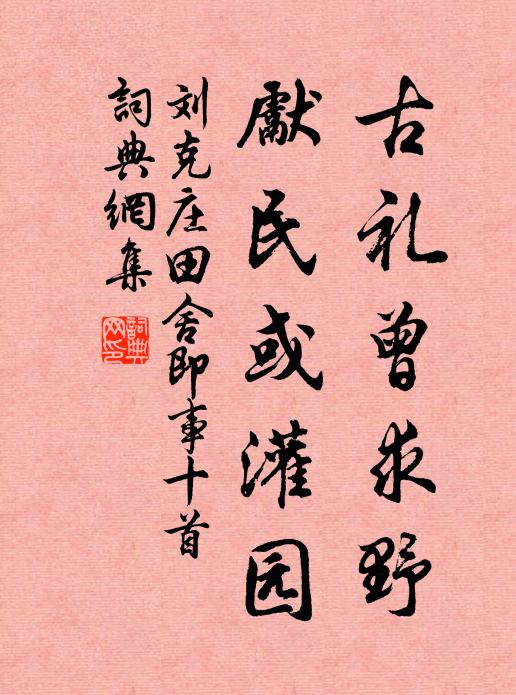 古礼曾求野
獻民或灌园
刘克庄田舍即事十首
詞典網集
詞典网印